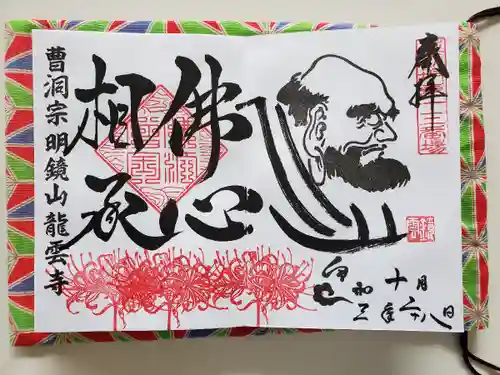 奉拝
令和三年
十月二十八日
佛心
相承
曹洞宗 明鏡山 龍雲寺